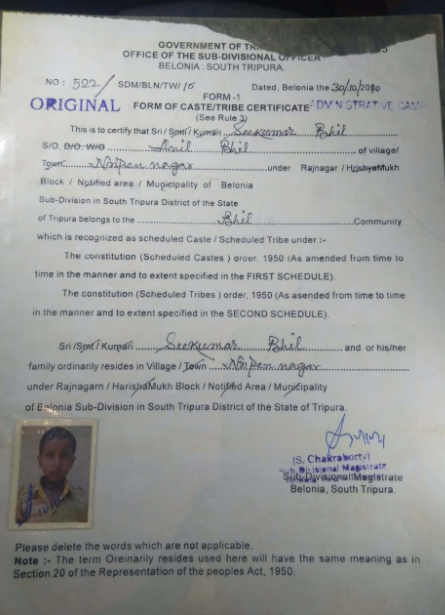 GOVERNMENT OF TR
OFFICE OF THE SUB-DIVISIONAL OFFICER
BELONIA : SOUTH TRIPURA.
NO : 522/ SDM/BLN/TW/15 Dated, Belonia the 30/10/2010
FORM-1
ORIGINAL FORM OF CASTE/TRIBE CERTIFICATE ADMINISTRATIVE CAMP
(See Rule 3)
This is to certify that Sri / Smti / Kumari Seekumar Bhil
S/O. D/O. W/O Anil Bhil of village/
Town Nripen nagar under Rajnagar / HrishyaMukh
Block / Notified area / Municipality of Belonia
Sub-Division in South Tripura District of the State
of Tripura belongs to the Bhil Community
which is recognized as scheduled Caste / Scheduled Tribe under :-
The constitution (Scheduled Castes ) order, 1950 (As amended from time to
time in the manner and to extent specified in the FIRST SCHEDULE).
The constitution (Scheduled Tribes ) order, 1950 (As asended from time to time
in the manner and to extent specified in the SECOND SCHEDULE).
Sri /Smt/ Kumari Seekumar Bhil and or his/her
family ordinarily resides in Village / Town Nripen nagar
under Rajnagarn / HarishaMukh Block / Notified Area / Municipality
of Belonia Sub-Division in South Tripura District of the State of Tripura.
(S. Chakraborty)
Sub Divisional Magistrate
Sub-Divisional Magistrate
Belonia, South Tripura.
Please delete the words which are not applicable.
Note :- The term Oreinarily resides used here will have the same meaning as in
Section 20 of the Representation of the peoples Act, 1950.